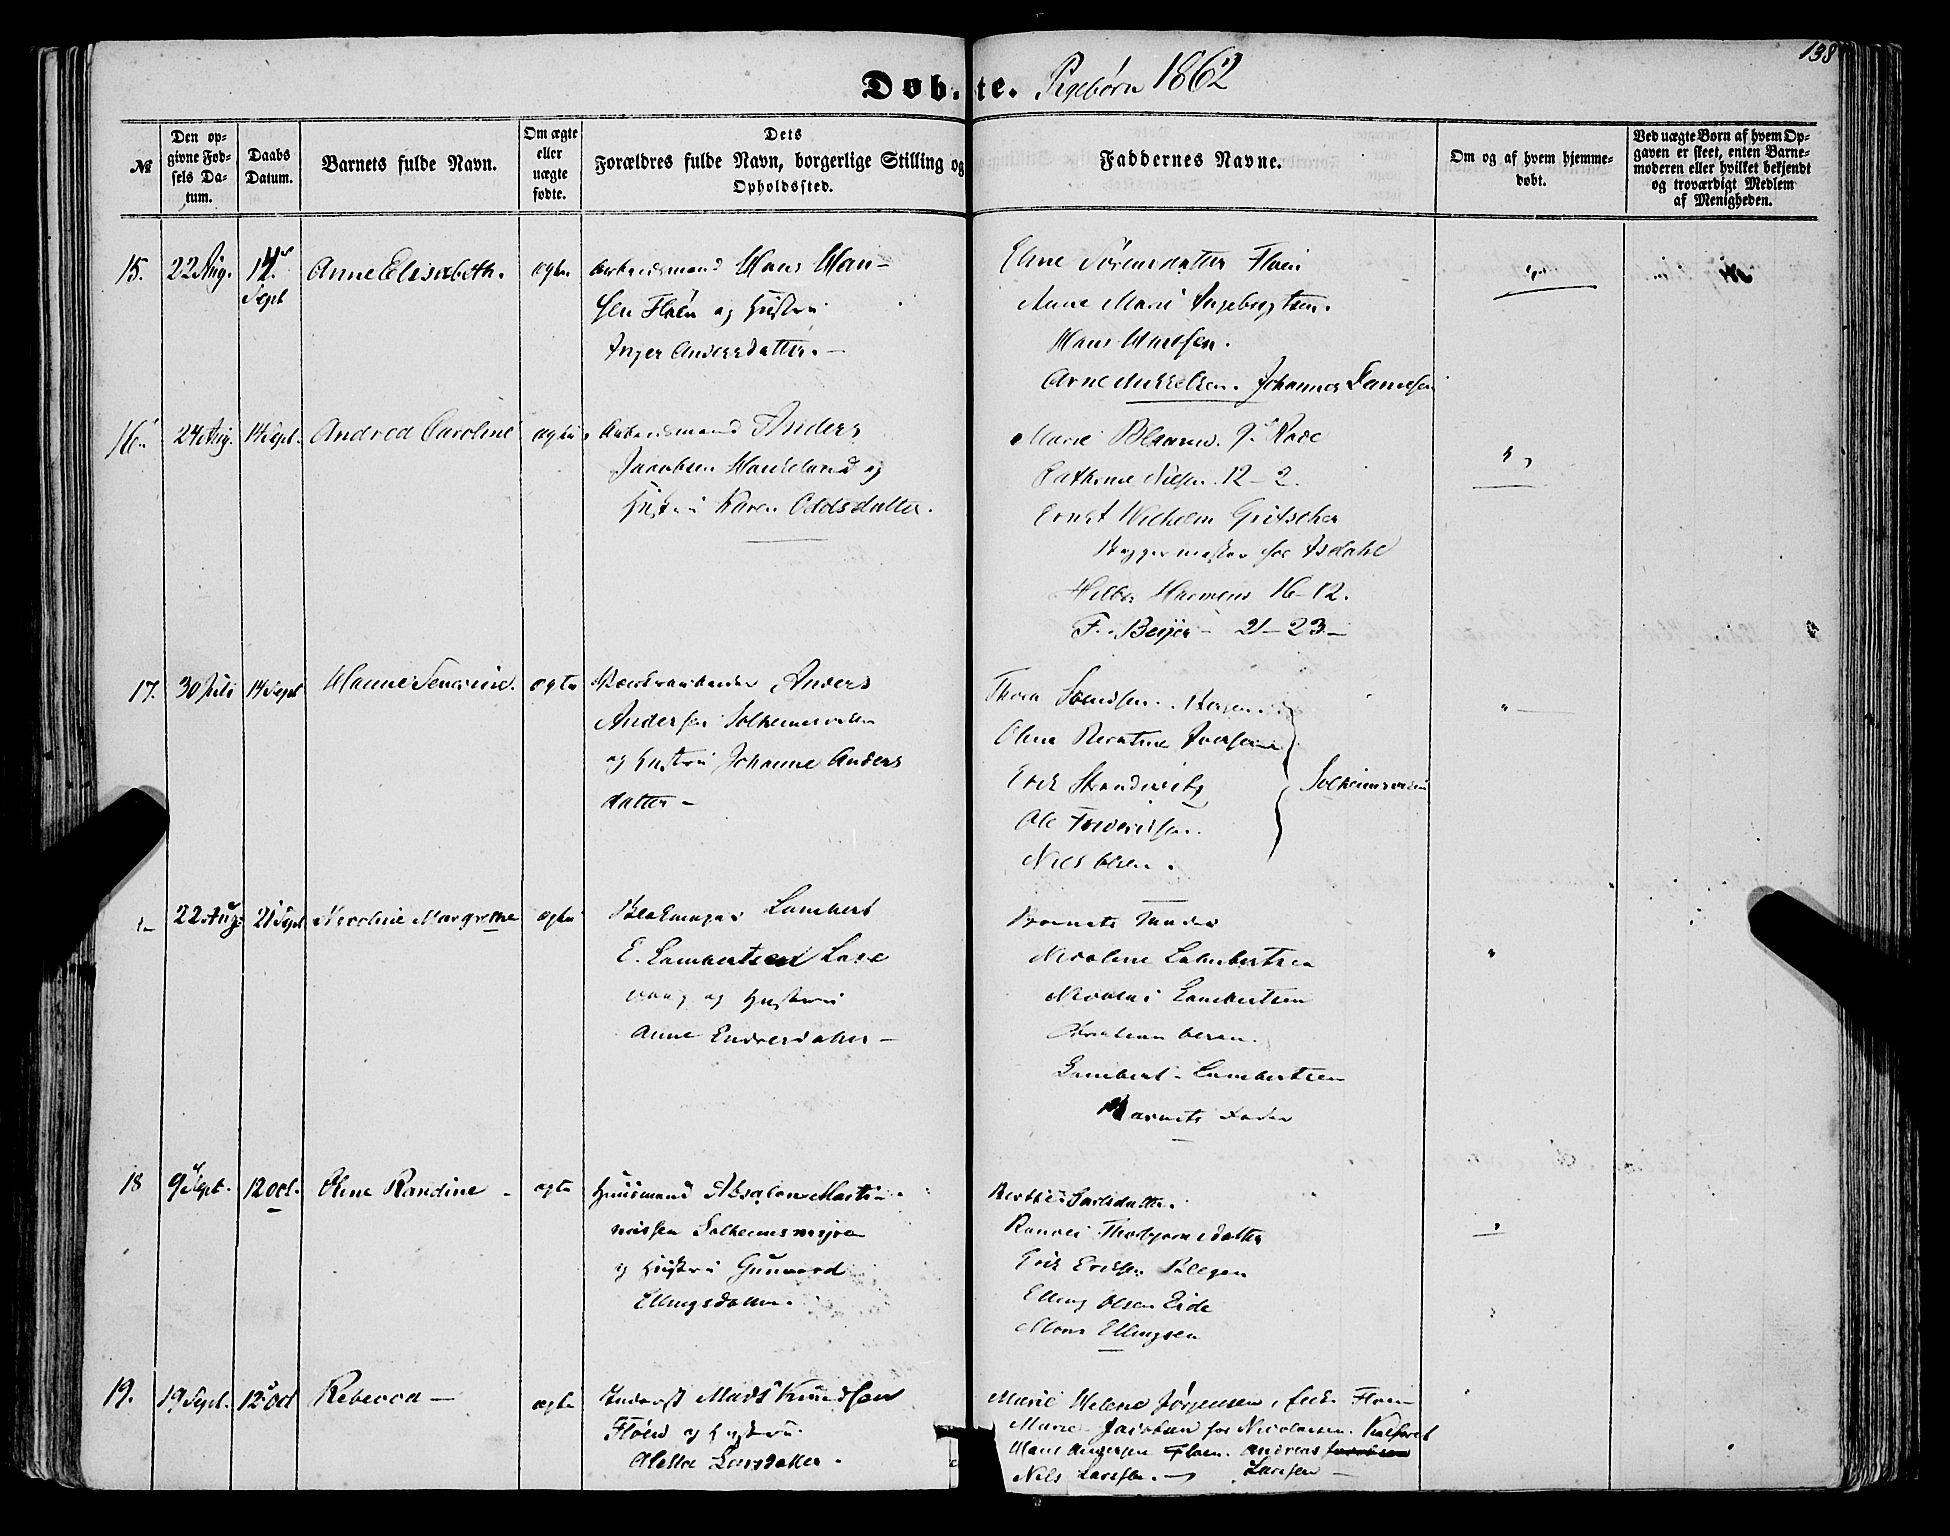 138
Døbte. Pigebørn 1862
№
Den op-
givne Fød-
sels Da-
tum.
Daabs
Datum.
Barnets fulde Navn.
Om ægte
eller
uægte
fødte.
Dets
Forældres fulde Navn, borgerlige Stilling og
Opholdssted.
Faddernes Navne.
Om og af hvem hjemme-
døbt.
Ved uægte Børn af hvem Op-
gaven er skeet, enten Barne-
moderen eller hvilket bekjendt
og troværdigt Medlem
af Menigheden.
15. 22 Aug. 14. Sept Anne Elisabeth. ægte
Arbeidsmand Hans Han-
sen Floen og Hustru
Inger Andersdatter. -
Eline Sørensdatter Floen
Anne Marie Ingebrigtsen.
Hans Hansen.
Arne Mikkelsen. Johannes
16. 24 Aug. 14 Sept. Andrea Caroline ægte
Arbeidsmand Anders
Jacobsen og
Hustru Karen Oddsdatter.
Marie
Cathrine Nielsen 12-2.
Ernst Wilhelm
Byggemester
16-12.
F. Beyer - 21-23-
17. 30 Juli 14 Sept Hanne Severine. ægte
Anders
Andersen Solheimsviken
og Hustru Johanne Anders
datter -
Thora Bergen
Oline Iversen
Erik
Ole
Nils Olsen.
Solheimsviken
22 Aug. 21 Sept Nicoline Margrethe ægte
Lambert
E. Lambertsen Laxe
vaag og Hustru
Anne Endresdatter -
Barnets Moder
Nicoline Lambertsen
Nicolai Lambertsen
Abraham Olsen.
Lambert Lambertsen
Barnets Fader
18 9 Sept. 12 Oct. Oline Randine - ægte
Huusmand Absalon Marti-
nussen Solheimsmyren
og Hustru Gunvord
Ellingsdatter.
Berthe
Ranvei Thorbjørnsdatter
Erik Eriksen
Elling Olsen Eide
Mons Ellingsen
19. 19 Sept. 12 Oct Rebecca - ægte
Mads Knudsen
Floen og Hustru
Larsdatter.
Marie Helene Jørgensen, Floen
Marie Jacobsen for Nicolaisen. Kalfaret
Hans Andersen Floen. Andreas
Nils Larsen. - Larsen -